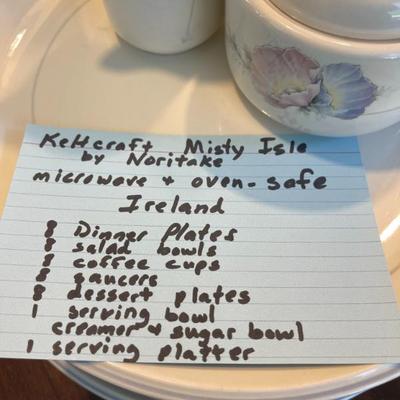 Keltcraft Misty Isle
by Noritake
microwave + oven-safe
Ireland
8 Dinner Plates
8 salad bowls
8 coffee cups
8 saucers
8 dessert plates
1 serving bowl
creamer + sugar bowl
1 serving platter